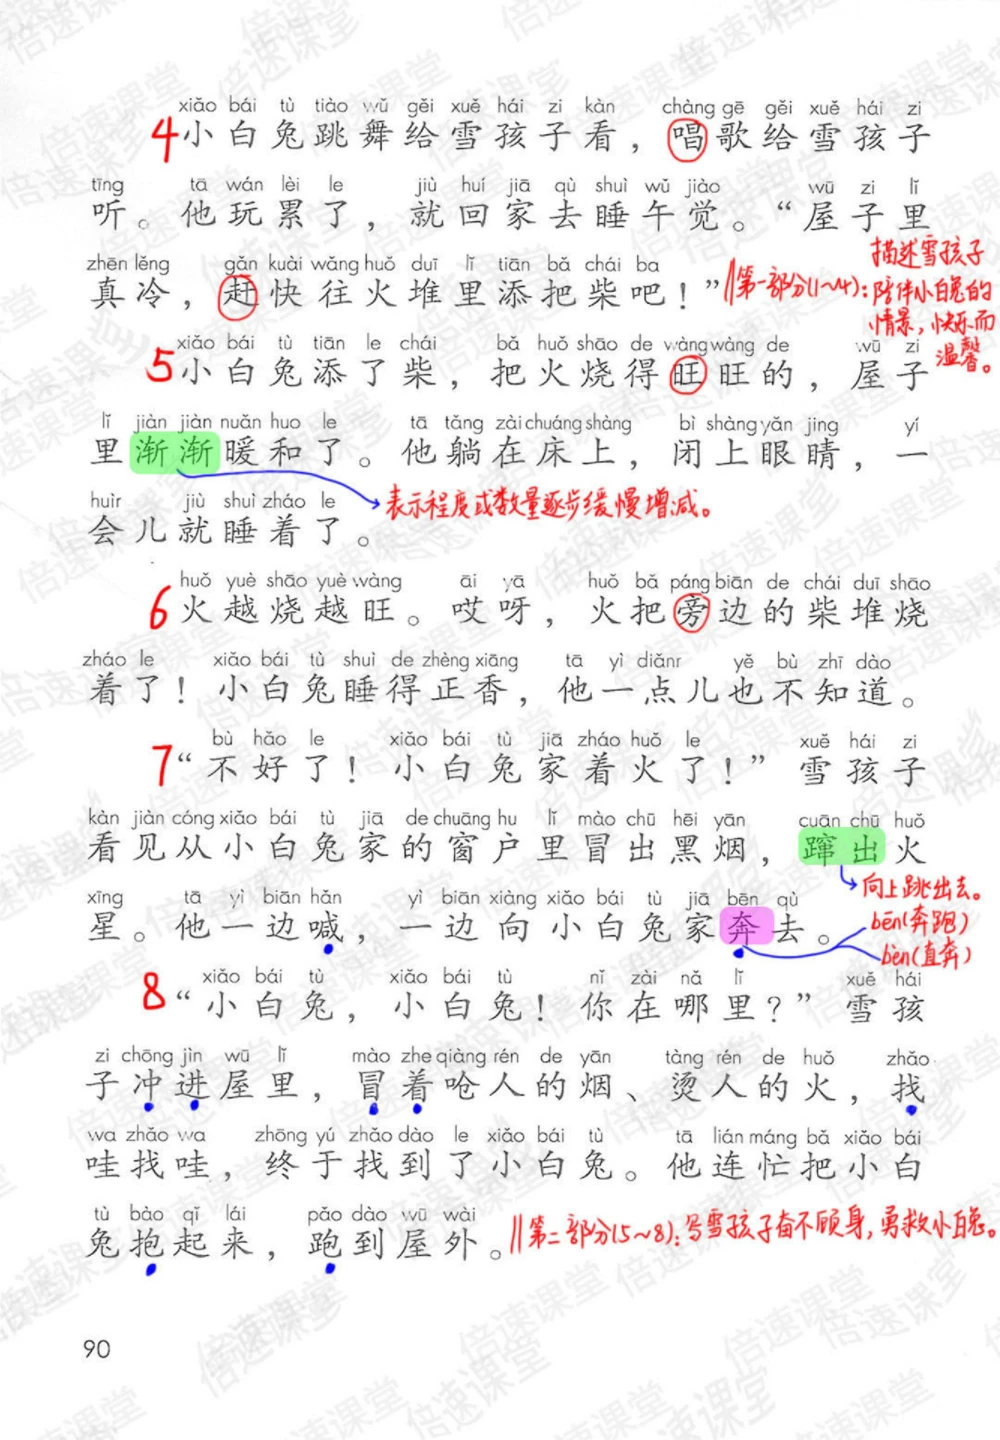 xiǎo bái tù tiào wǔ gěi xuě hái zi kàn chàng gē gěi xuě hái zi
4小白兔跳舞给雪孩子看，唱歌给雪孩子
tīng tā wán lèi le jiù huí jiā qù shuì wǔ jiào wū zi lǐ
听。他玩累了，就回家去睡午觉。“屋子里
zhēn lěng gǎn kuài wǎng huǒ duī lǐ tiān bǎ chái ba
真冷，赶快往火堆里添把柴吧！”
第一部分(1~4)：描述雪孩子
陪伴小白兔的
情景，快乐而
温馨。
xiǎo bái tù tiān le chái bǎ huǒ shāo de wàng wàng de wū zi
5小白兔添了柴，把火烧得旺旺的，屋子
lǐ jiàn jiàn nuǎn huo le tā tǎng zài chuáng shàng bì shàng yǎn jing yí
里渐渐暖和了。他躺在床上，闭上眼睛，一
表示程度或数量逐步缓慢增减。
huìr jiù shuì zháo le
会儿就睡着了。
huǒ yuè shāo yuè wàng āi yā huǒ bǎ páng biān de chái duī shāo
6火越烧越旺。哎呀，火把旁边的柴堆烧
zháo le xiǎo bái tù shuì de zhèng xiāng tā yì diǎnr yě bù zhī dào
着了！小白兔睡得正香，他一点儿也不知道。
bù hǎo le xiǎo bái tù jiā zháo huǒ le xuě hái zi
7“不好了！小白兔家着火了！”雪孩子
kàn jiàn cóng xiǎo bái tù jiā de chuāng hu lǐ mào chū hēi yān cuān chū huǒ
看见从小白兔家的窗户里冒出黑烟，蹿出火
向上跳出去。
xīng tā yì biān hǎn yì biān xiàng xiǎo bái tù jiā bēn qù
星。他一边喊，一边向小白兔家奔去。
bēn(奔跑)
bèn(直奔)
xiǎo bái tù xiǎo bái tù nǐ zài nǎ lǐ xuě hái
8“小白兔，小白兔！你在哪里？”雪孩
zi chōng jìn wū lǐ mào zhe qiàng rén de yān tàng rén de huǒ zhǎo
子冲进屋里，冒着呛人的烟、烫人的火，找
wa zhǎo wa zhōng yú zhǎo dào le xiǎo bái tù tā lián máng bǎ xiǎo bái
哇找哇，终于找到了小白兔。他连忙把小白
tù bào qǐ lái pǎo dào wū wài
兔抱起来，跑到屋外。
第二部分(5~8)：写雪孩子奋不顾身，勇救小白兔。
90
倍速课堂